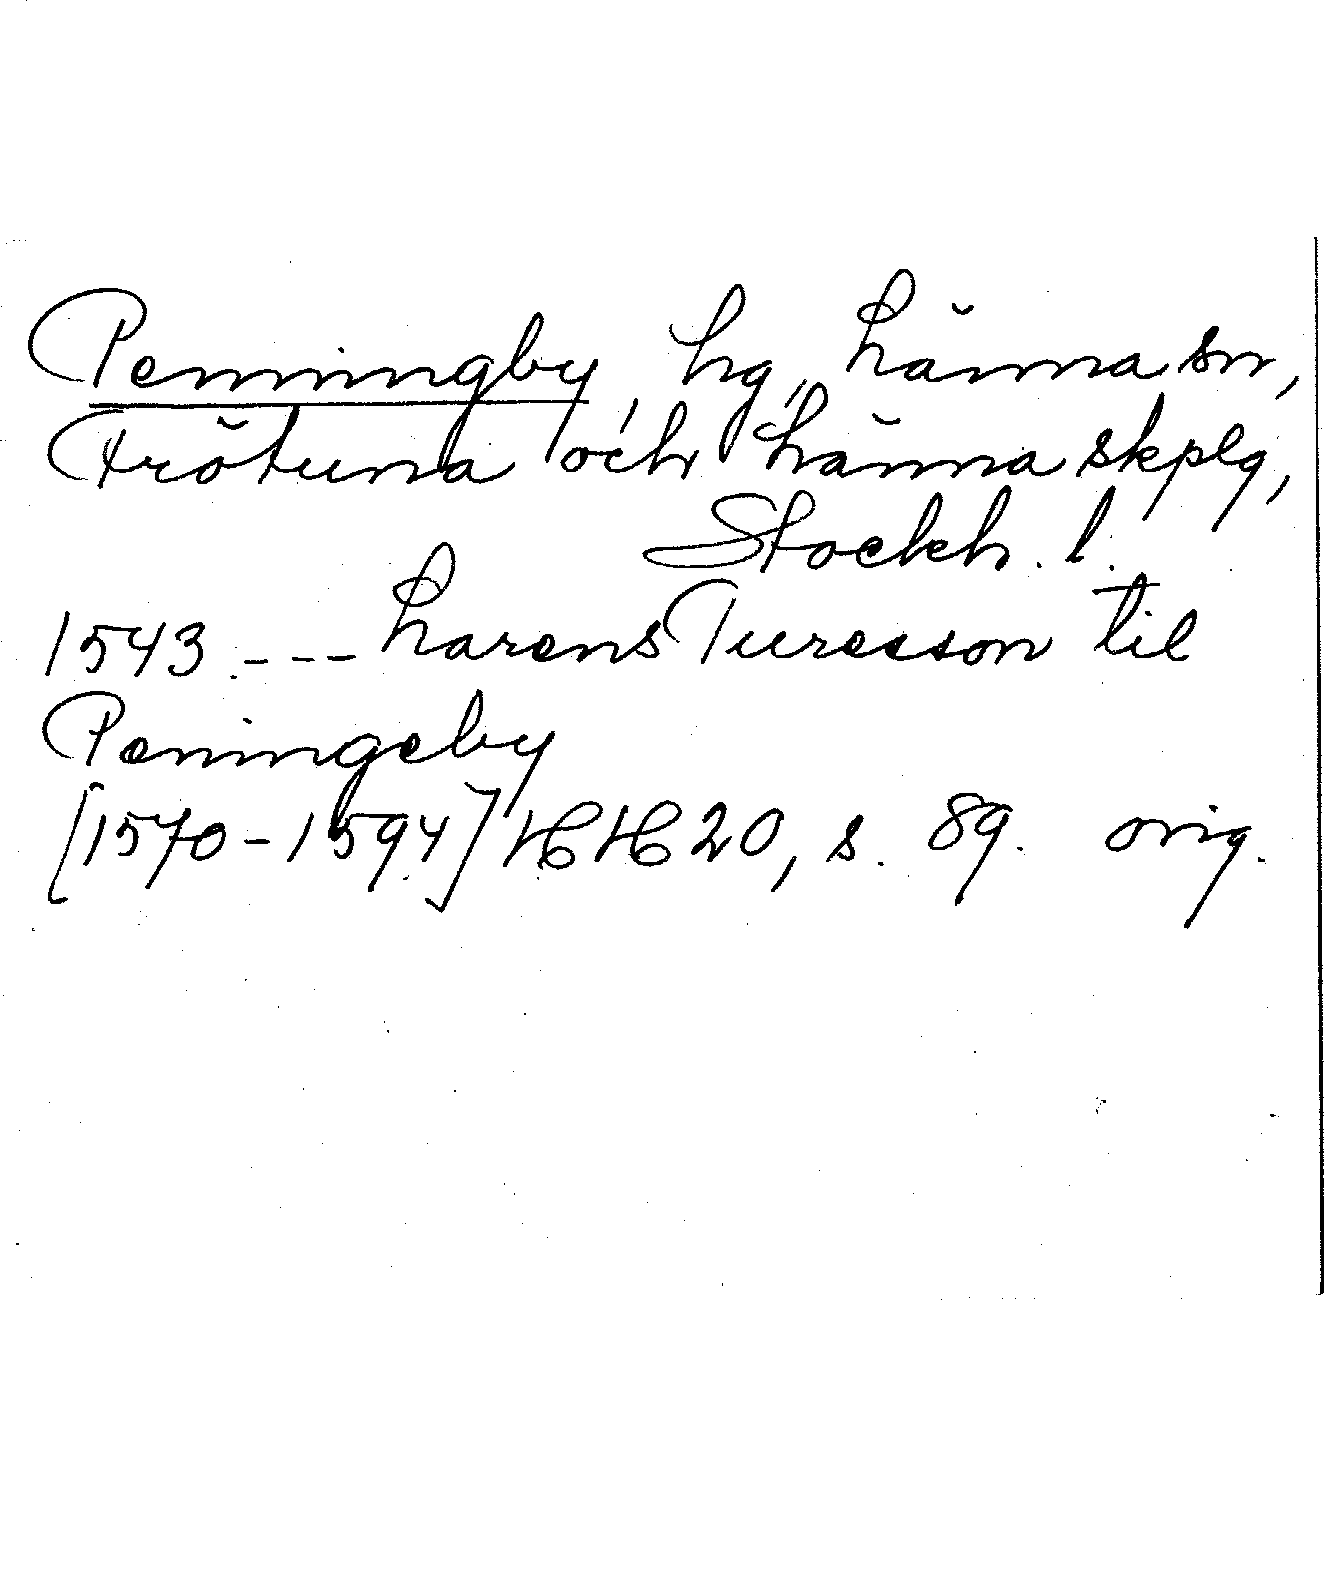 Penningby, hg, Länna sn,
Frötuna och Länna skplg,
Stockh. l.
1543. --- Larens Turesson til
Peningeby
[1570-1594] HH 20, s. 89. orig.